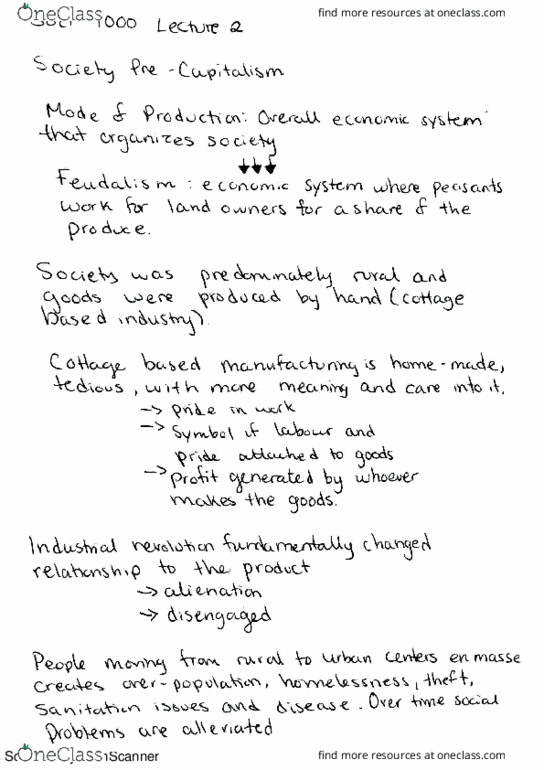 OneClass find more resources at oneclass.com
1000 Lecture 2
Society Pre-Capitalism
Mode of Production: Overall economic system
that organizes society
Feudalism: economic system where peasants
work for land owners for a share of the
produce.
Society was predominately rural and
goods were produced by hand (cottage
based industry).
Cottage based manufacturing is home-made,
tedious, with more meaning and care into it.
→ pride in work
→ Symbol of labour and
pride attached to goods
→ profit generated by whoever
makes the goods.
Industrial revolution fundamentally changed
relationship to the product
→ alienation
→ disengaged
People moving from rural to urban centers en masse
creates over-population, homelessness, theft,
sanitation issues and disease. Over time social
problems are alleviated
OneClass Scanner find more resources at oneclass.com